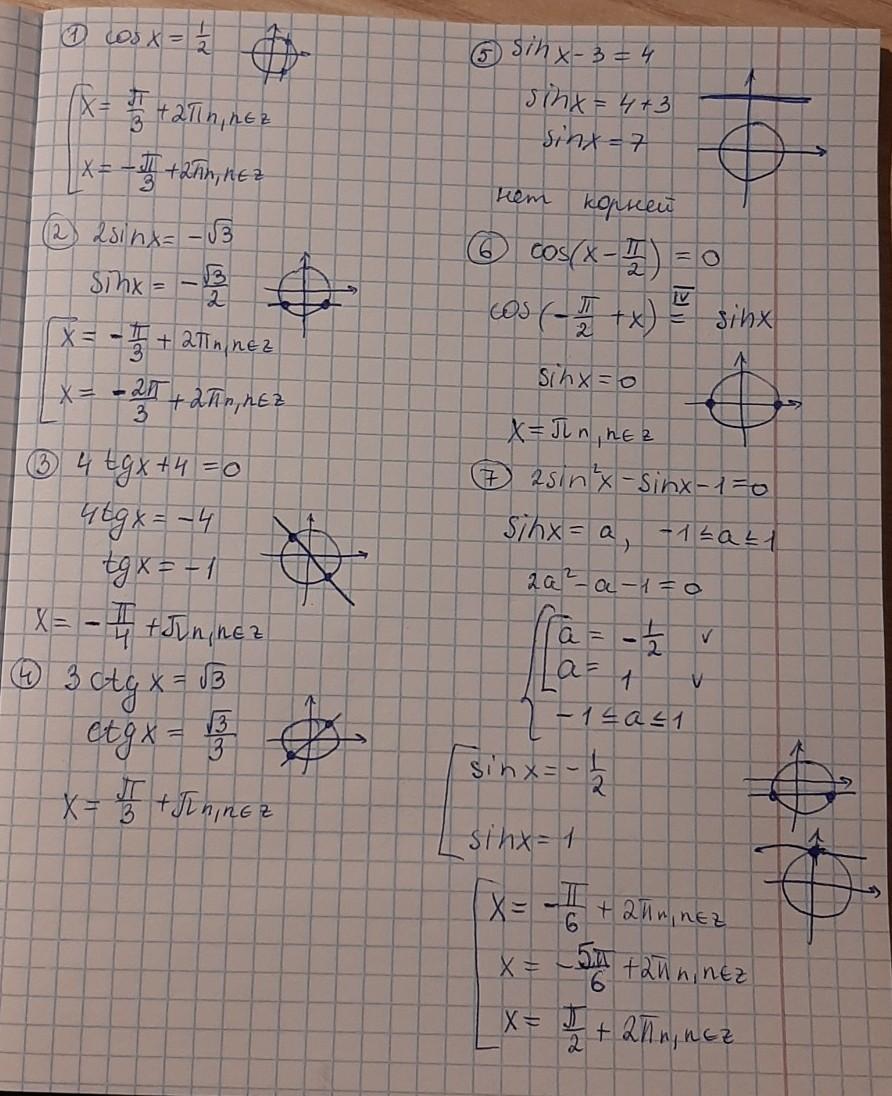 ① cos x = 1/2
x = π/3 + 2πn, n∈z
x = -π/3 + 2πn, n∈z
② 2sinx = -√3
sinx = -√3/2
x = -π/3 + 2πn, n∈z
x = -2π/3 + 2πn, n∈z
③ 4 tgx + 4 = 0
4tgx = -4
tgx = -1
x = -π/4 + πn, n∈z
④ 3 ctg x = √3
ctg x = √3/3
x = π/3 + πn, n∈z
⑤ sin x - 3 = 4
sinx = 4+3
sinx = 7
нет корней
⑥ cos(x - π/2) = 0
cos(-π/2 + x) =^IV sinx
sinx = 0
x = πn, n∈z
⑦ 2sin²x - sinx - 1 = 0
sinx = a, -1 ≤ a ≤ 1
2a² - a - 1 = 0
a = -1/2 v
a = 1 v
-1 ≤ a ≤ 1
sinx = -1/2
sinx = 1
x = -π/6 + 2πn, n∈z
x = -5π/6 + 2πn, n∈z
x = π/2 + 2πn, n∈z